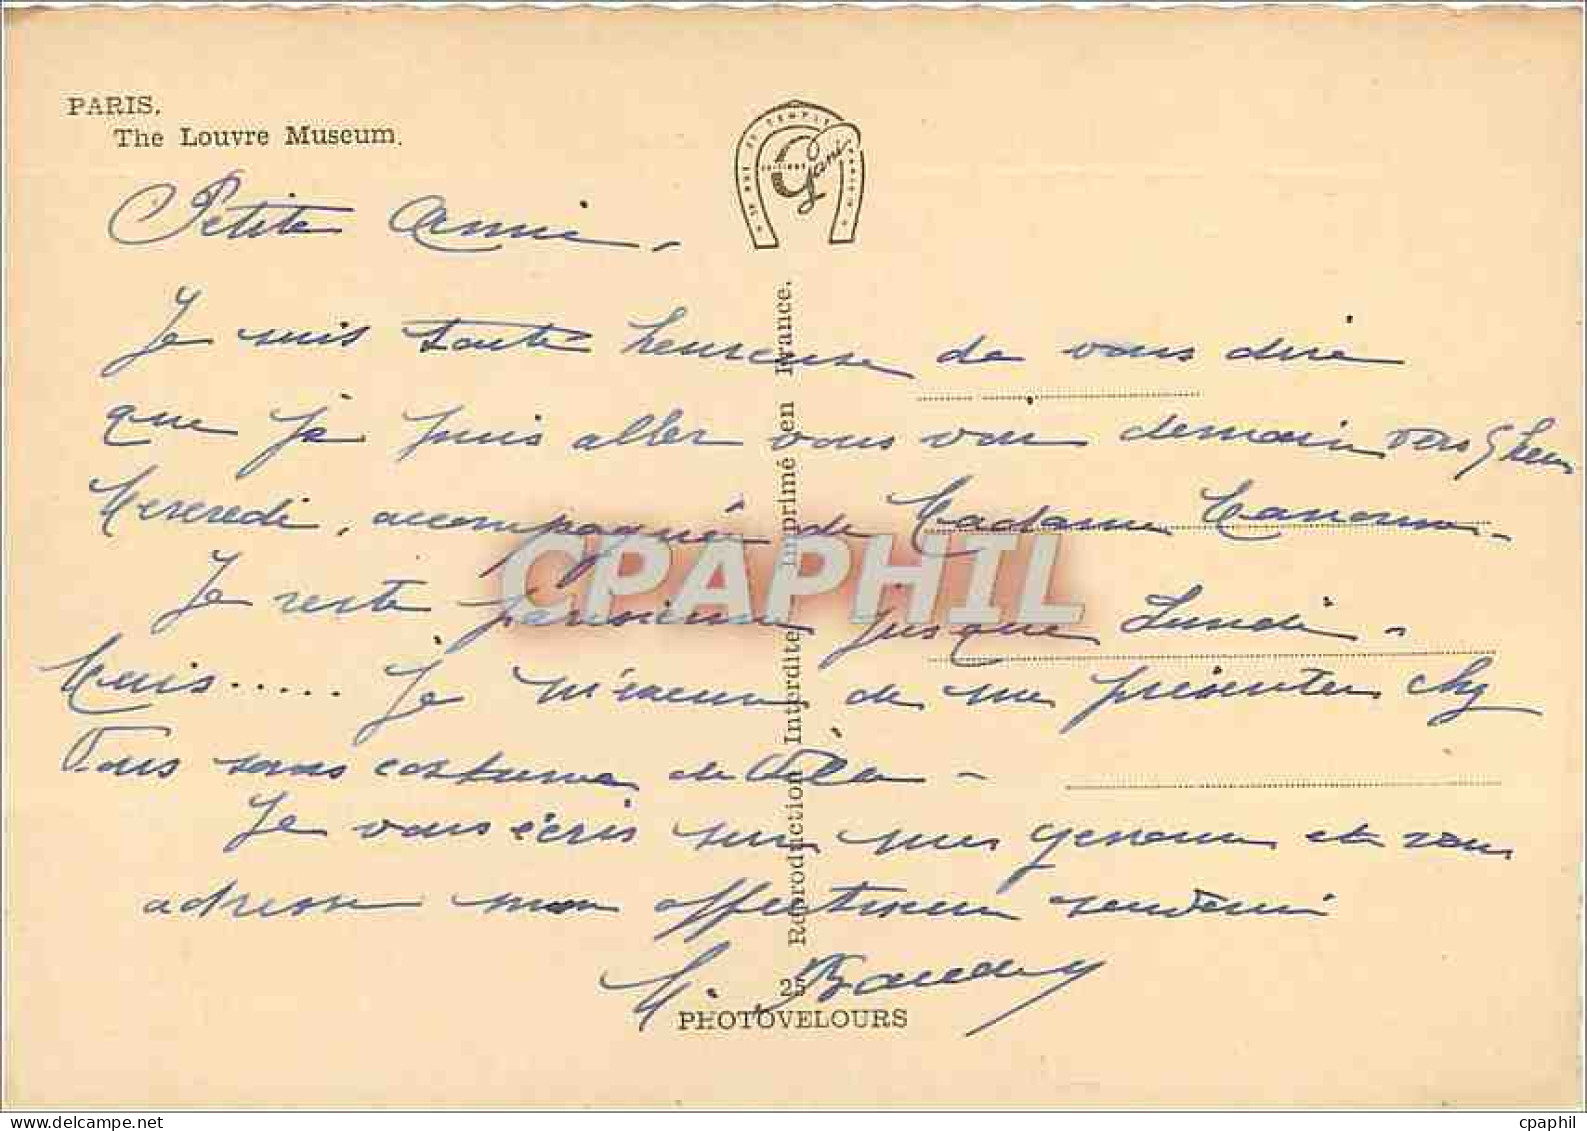 PARIS.
The Louvre Museum.
Petite Annie -
Je suis toute heureuse de vous dire
que je puis aller vous voir demain vers 5 heures
Mercredi, accompagnée de Madame
Je reste parisienne jusque Lundi -
Mais..... Je m'excuse de me présenter chez
Vous sans costume de -
Je vous écris sur mes genoux et vous
adresse mon affectueux souvenir
M. Baudry
Reproduction Interdite Imprimé en France.
25
PHOTOVELOURS
Gani
CPAPHIL
delcampe.net
cpaphil